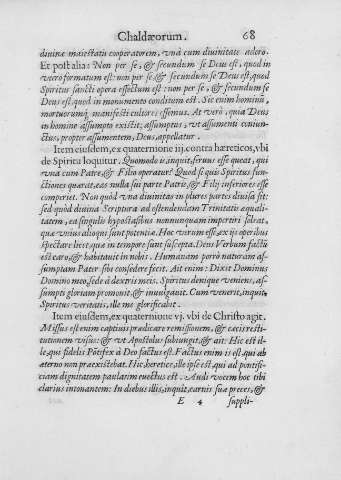 Chaldæorum. 68
diuinæ maiestatis cooperatorem, vnà cum diuinitate adoro.
Et post alia: Non per se, & secundum se Deus est, quod in
vtero formatum est: non per se & secundum se Deus est, quod
Spiritus sancti opera effectum est: non per se, & secundum se
Deus est, quod in monumento conditum est. Sic enim hominū,
mortuorumq; manifesti cultores essemus. At verò, quia Deus
in homine assumpto existit; assumptus, vt assumenti coniun-
ctus, propter assumentem, Deus, appellatur.
Item eiusdem, ex quaternione iij. contra hæreticos, vbi
de Spiritu loquitur. Quomodo is, inquit, seruus esse queat, qui
vnà cum Patre, & Filio operatur? Quod si quis Spiritus fun-
ctiones quærat, eas nulla sui parte Patris, & Filij inferiores esse
comperiet. Non quòd vna diuinitas in plures partes diuisa sit:
sed quòd diuina Scriptura ad ostendendam Trinitatis æquali-
tatem, ea singulis hypostasibus nonnunquam impertiri soleat,
quæ vnius alioqui sunt potentiæ. Hoc verum esse, ex ijs operibus
spectare licet, quæ in tempore sunt suscepta. Deus Verbum factū
est caro, & habitauit in nobis. Humanam porrò naturam as-
sumptam Pater sibi consedere fecit. Ait enim: Dixit Dominus
Domino meo, sede à dextris meis. Spiritus denique veniens, as-
sumpti gloriam promouit, & euulgauit. Cum venerit, inquit,
Spiritus veritatis, ille me glorificabit.
Item eiusdem, ex quaternione vj. vbi de Christo agit.
Missus est enim captiuis prædicare remissionem, & cæcis resti-
tutionem visus: & vt Apostolus subiungit, & ait: Hic est il-
le, qui fidelis Pōtifex à Deo factus est. Factus enim is est, qui ab
æterno non præexistebat. Hic, hæretice, ille ipse est, qui ad pontifi-
ciam dignitatem paulatim euectus est. Audi vocem hoc tibi
clarius intonantem: In diebus illis, inquit, carnis suæ preces, &
E 4 suppli-